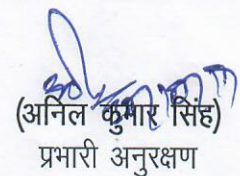 (अनिल कुमार सिंह)
प्रभारी अनुरक्षण